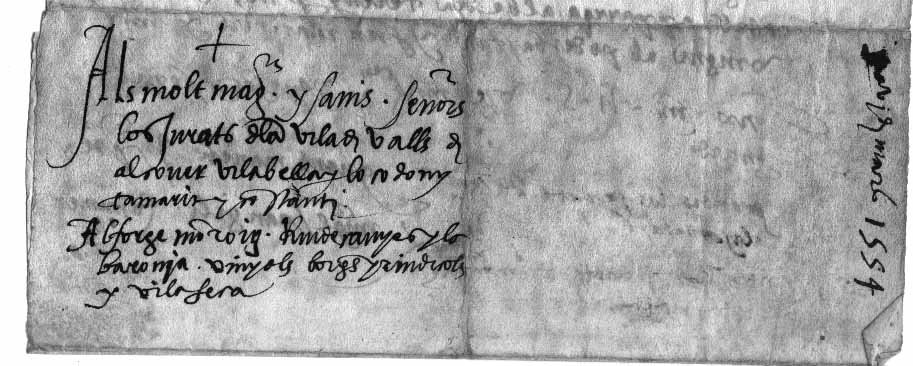 Als molt magcs. y sauis. señors
los Jurats dla vila d Valls d
alcouer vilabella y lo codony
tamarit y costanti.
Alforge mōroig. Riudecanyes y la
baronia. vinyols borgs y riudicols
y vilaseca
març 1554